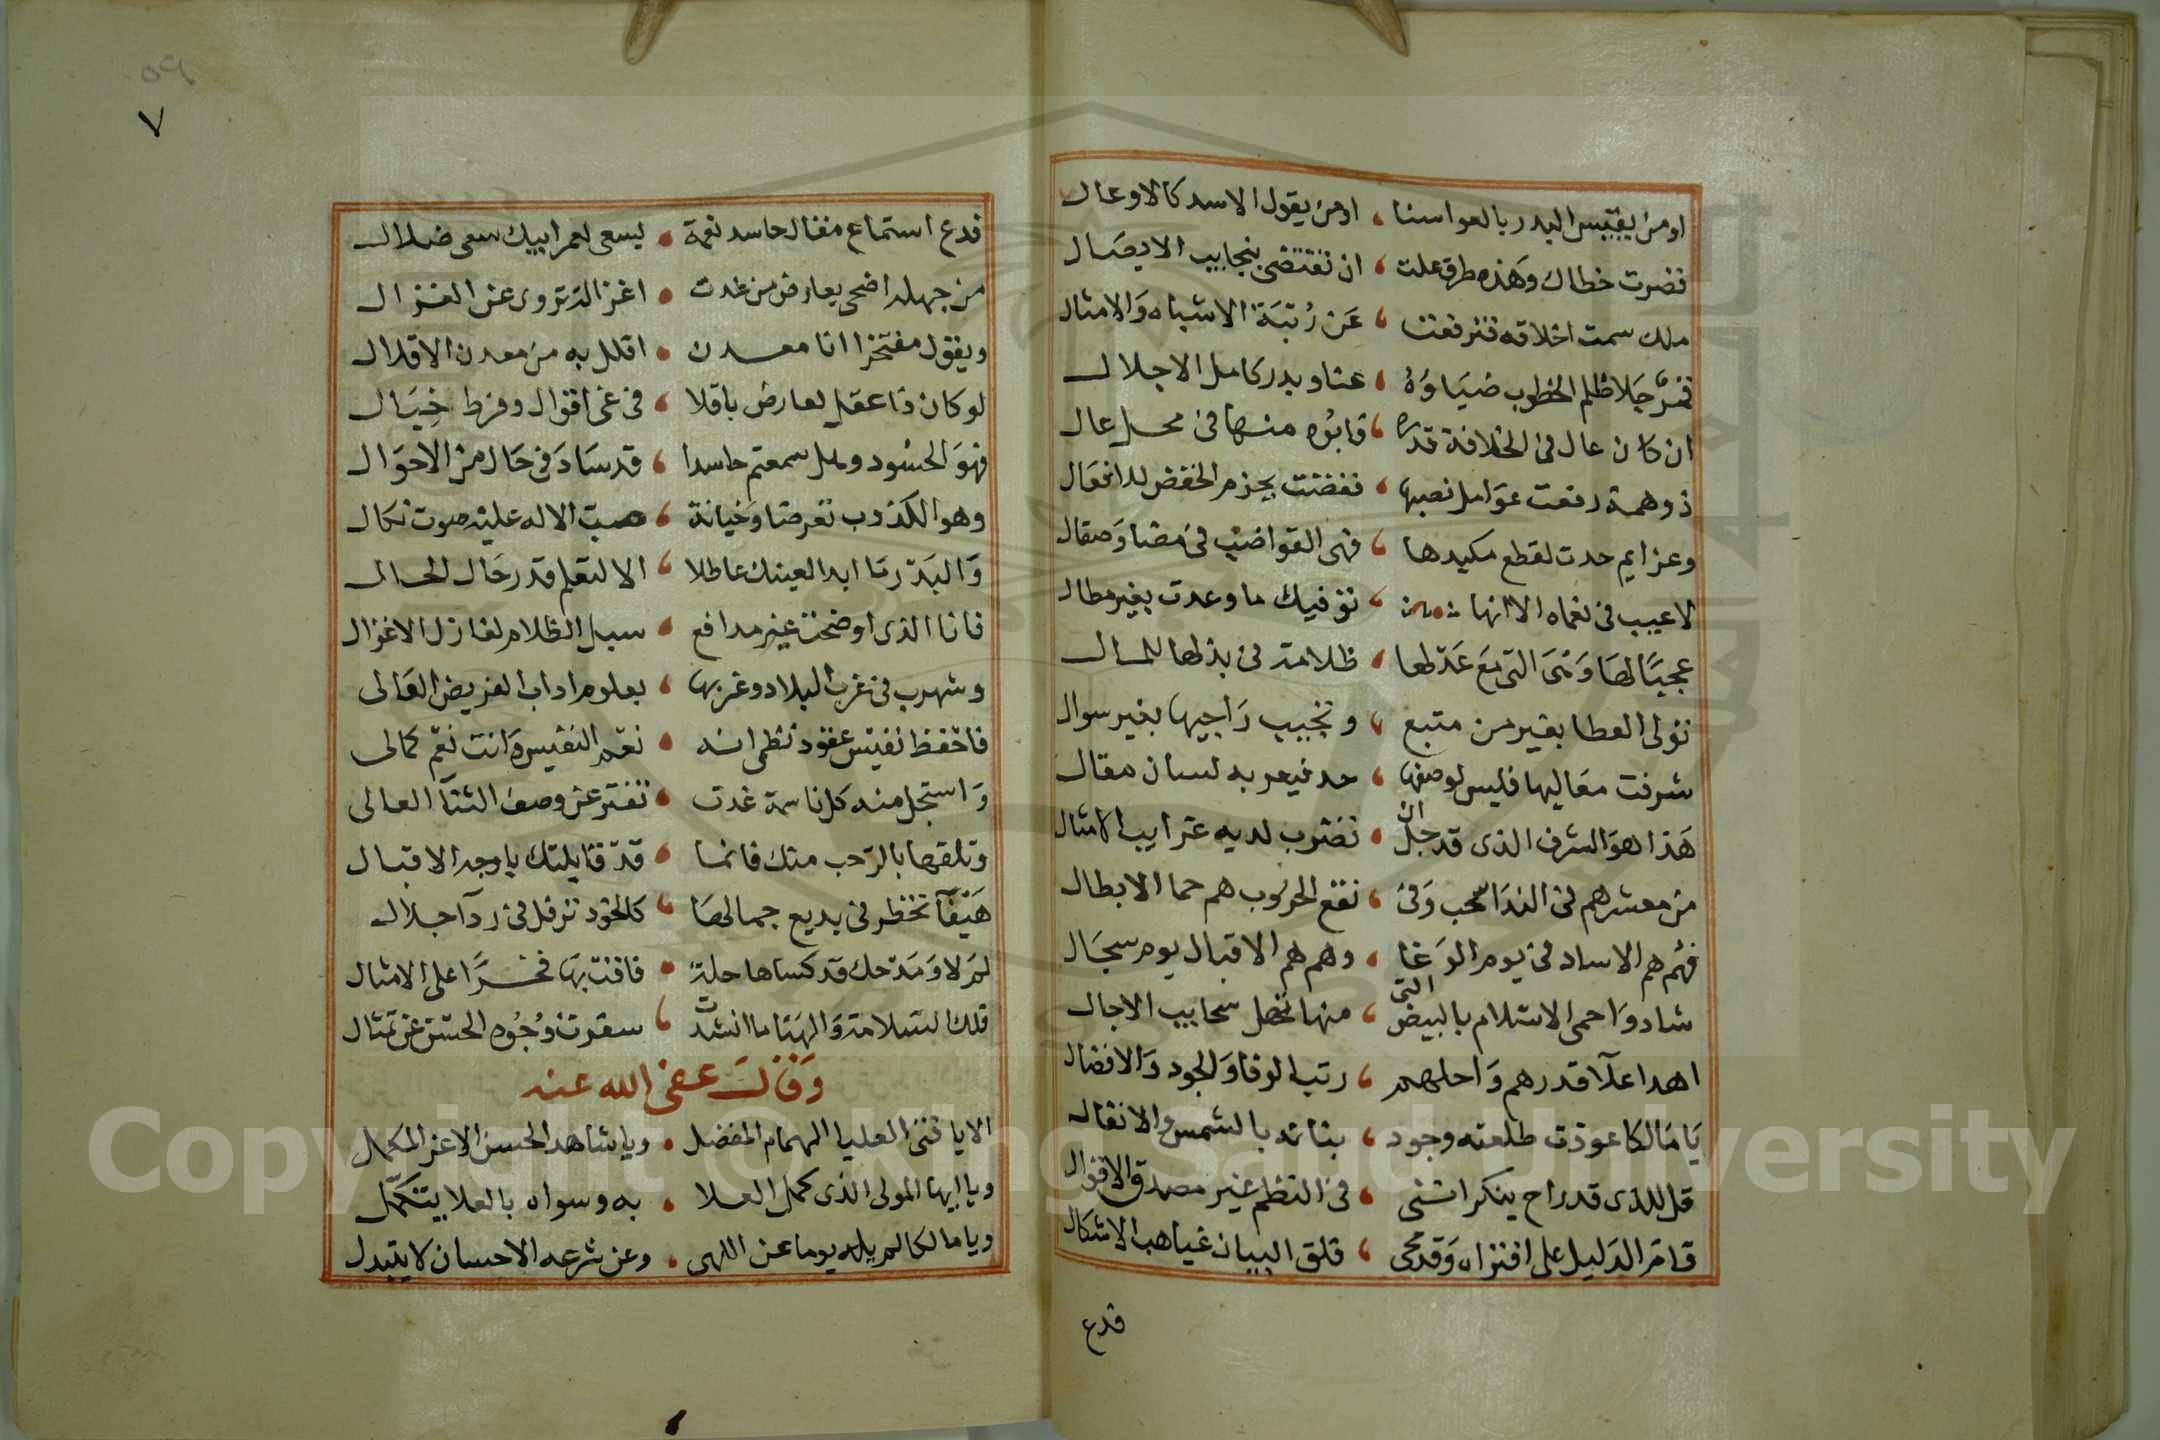 او من يقيس البدر بالعوا سنا ، او من يقول الاسد كالاوعال
قصرت خطاك وهذه طرق علت ، ان تقتضى بنجايب الايصال
ملك سمت اخلاقه فترفعت ، عن رتبة الاشباه والامثال
قمر جلا ظلم الخطوب ضياوه ، عنا وبدر كامل الاجلال
ان كان عال فى الخلافة قدره ، فابوه منها فى محل عال
ذو همة رفعت عوامل نصبها ، فقضت بجزم الخفض للافعال
وعزايم حدت لقطع مكيدها ، فهى القواضب فى مضا وصقال
لا عيب فى نعماه الا انها ، توفيك ما وعدت بغير مطال
عجبا لها وهى التى مع عدلها ، ظلامة فى بذلها للمال
تولى العطا بغير من متبع ، وتجيب راجيها بغير سوال
شرفت معاليها فليس لوصفها ، حد فيعربه لسان مقال
هذا هو الشرف الذى قد جل ان ، تضرب لديه غرايب الامثال
من معشر هم فى الندا سحب وفى ، نقع الحروب هم حما الابطال
فهم هم الاساد فى يوم الوغا ، وهم هم الاقبال يوم سجال
شادوا حمى الاسلام بالبيض التى ، منها تحل سحايب الاجال
اهدا علا قدرهم واحلهم ، رتب الوفا والجود والافضال
يا مالكا عوذت طلعته وجود ، بنانه بالشمس والانفال
قل للذى قد راح ينكر اننى ، فى النظم غير مصدق الاقوال
قام الدليل على افتراه وقد محى ، فلق البيان غياهب الاشكال
فدع
٧
فدع استماع مقال حاسد نعمة ، يسعى لعمر ابيك سعى ضلال
من جهله اضحى يعارض من غدت ، اغزاله تروى عن الغزال
ويقول مفتخرا انا معدن ، اقلل به من معدن الاقلال
لو كان ذا عقل لعارض باقلا ، فى غى اقوال وفرط خيال
فهو الحسود وهل سمعتم حاسدا ، قد ساد فى حال من الاحوال
وهو الكذوب تعرضا وخيانة ، صب الاله عليه صوت نكال
والبدر ما ابدا لعينك عاطلا ، الا لتعلم قدر حال الحال
فانا الذى اوضحت غير مدافع ، سبل الظلام لغازل الاغزال
وشهرت فى غرب البلاد وغربها ، بعلوم اداب القريض الغالى
فاحفظ نفيس عقود نظمى انه ، نعم النفيس وانت نعم كمالى
واستجل منه كل ناسمة غدت ، تفتر عن وصف الثنا العالى
وتلقها بالرحب منك فانما ، قد قابلتك باوجه الاقبال
هيفا تخطر فى بديع جمالها ، كالخود ترفل فى ردا جلال
لم لا ومدحك قد كساها حلة ، فاقت بها فخرا على الامثال
فلك السلامة والهنا ما انشدت ، سفرت وجوه الحسن عن تمثال
وقال عفى الله عنه
الا يا فتى العليا الهمام المفضل ، ويا شاهد الحسن الاغر المكمل
ويا ايها المولى الذى كمل العلا ، به وسواه بالعلا يتكمل
ويا مالكا لم يله يوما عن اللهى ، وعن شرعه الاحسان لا يتبدل
Copyright © King Saud University